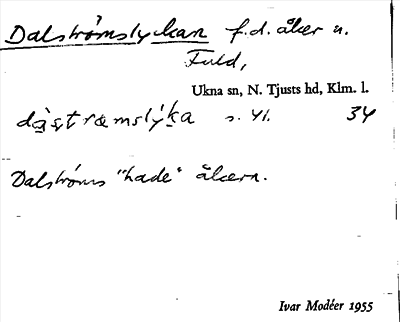 Dalströmslyckan f.d. åker u.
Fuld,
Ukna sn, N. Tjusts hd, Klm. l.
s. 41. 34
Dalströms "hade" åkern.
Ivar Modéer 1955